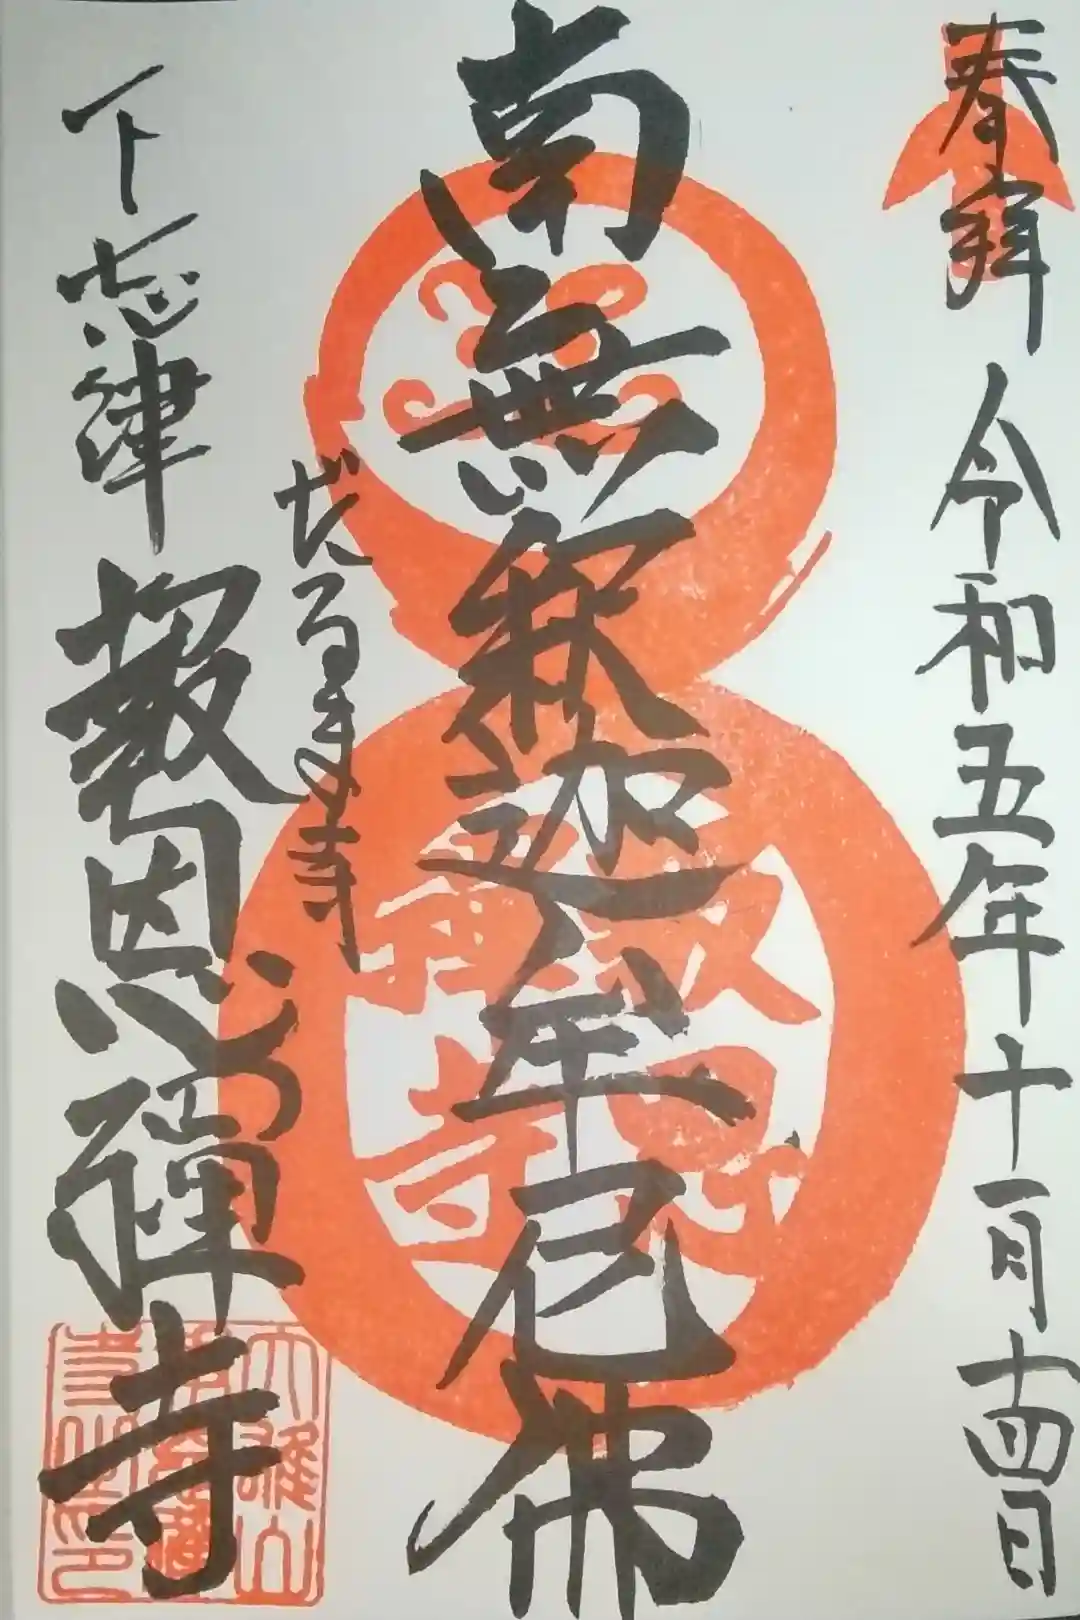 奉拝
令和五年十一月十四日
南無釈迦牟尼佛
だるま寺
下志津
報恩禅寺
報恩
禅寺